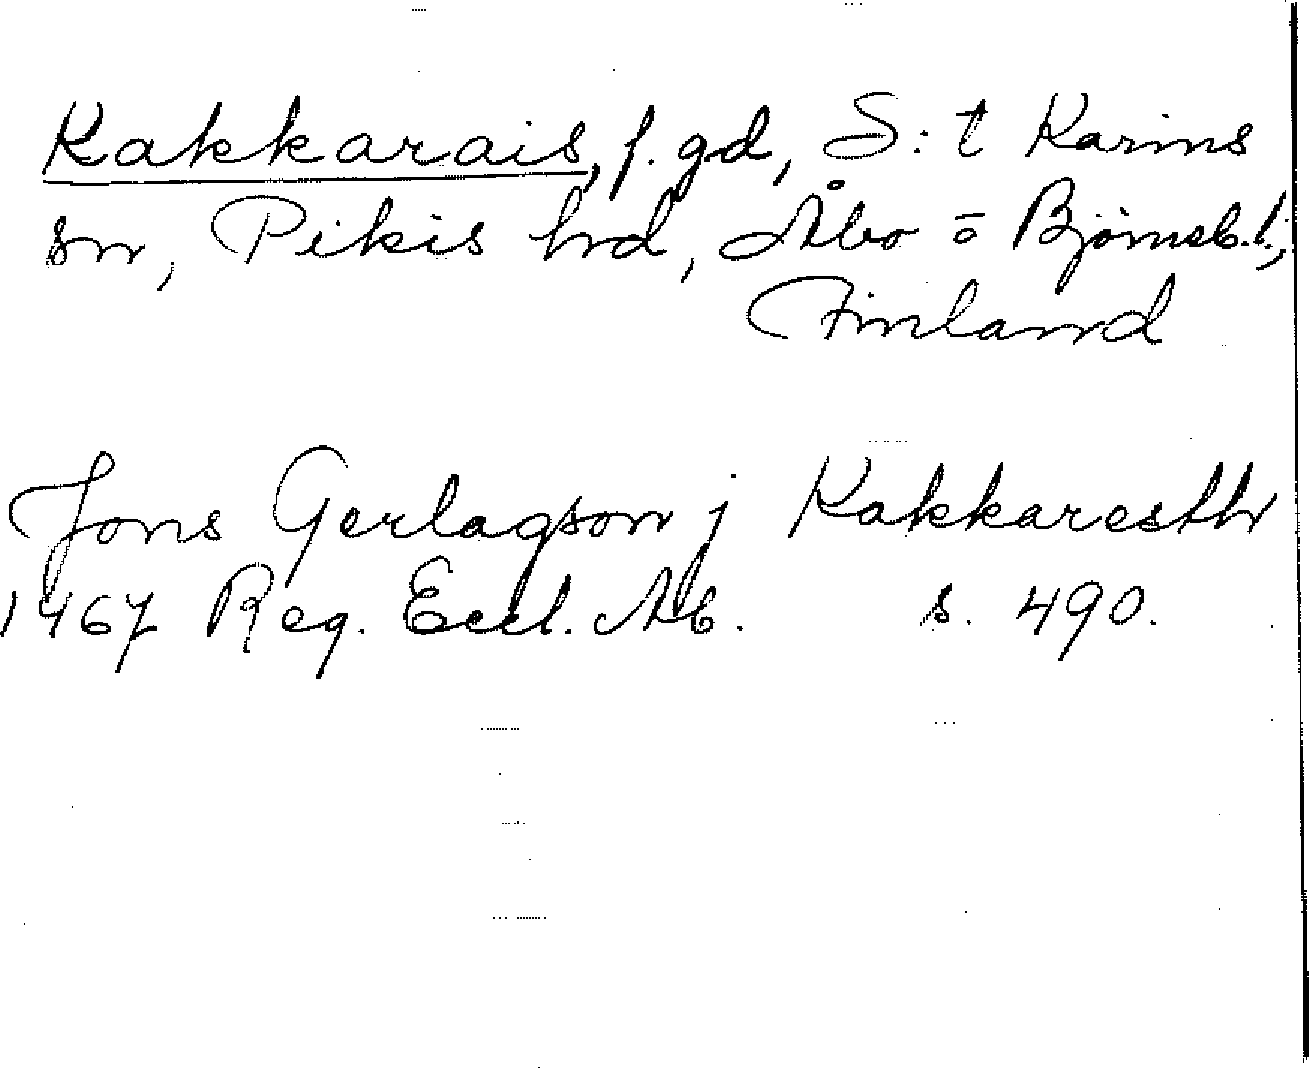 Kakkarais, f. gd, S:t Karins
sn, Pikis hd, Åbo = Björneb. l.,
Finland
Jons Gerlagson j Kakkaresth
1467 Reg. Eccl. Ab. s. 490.